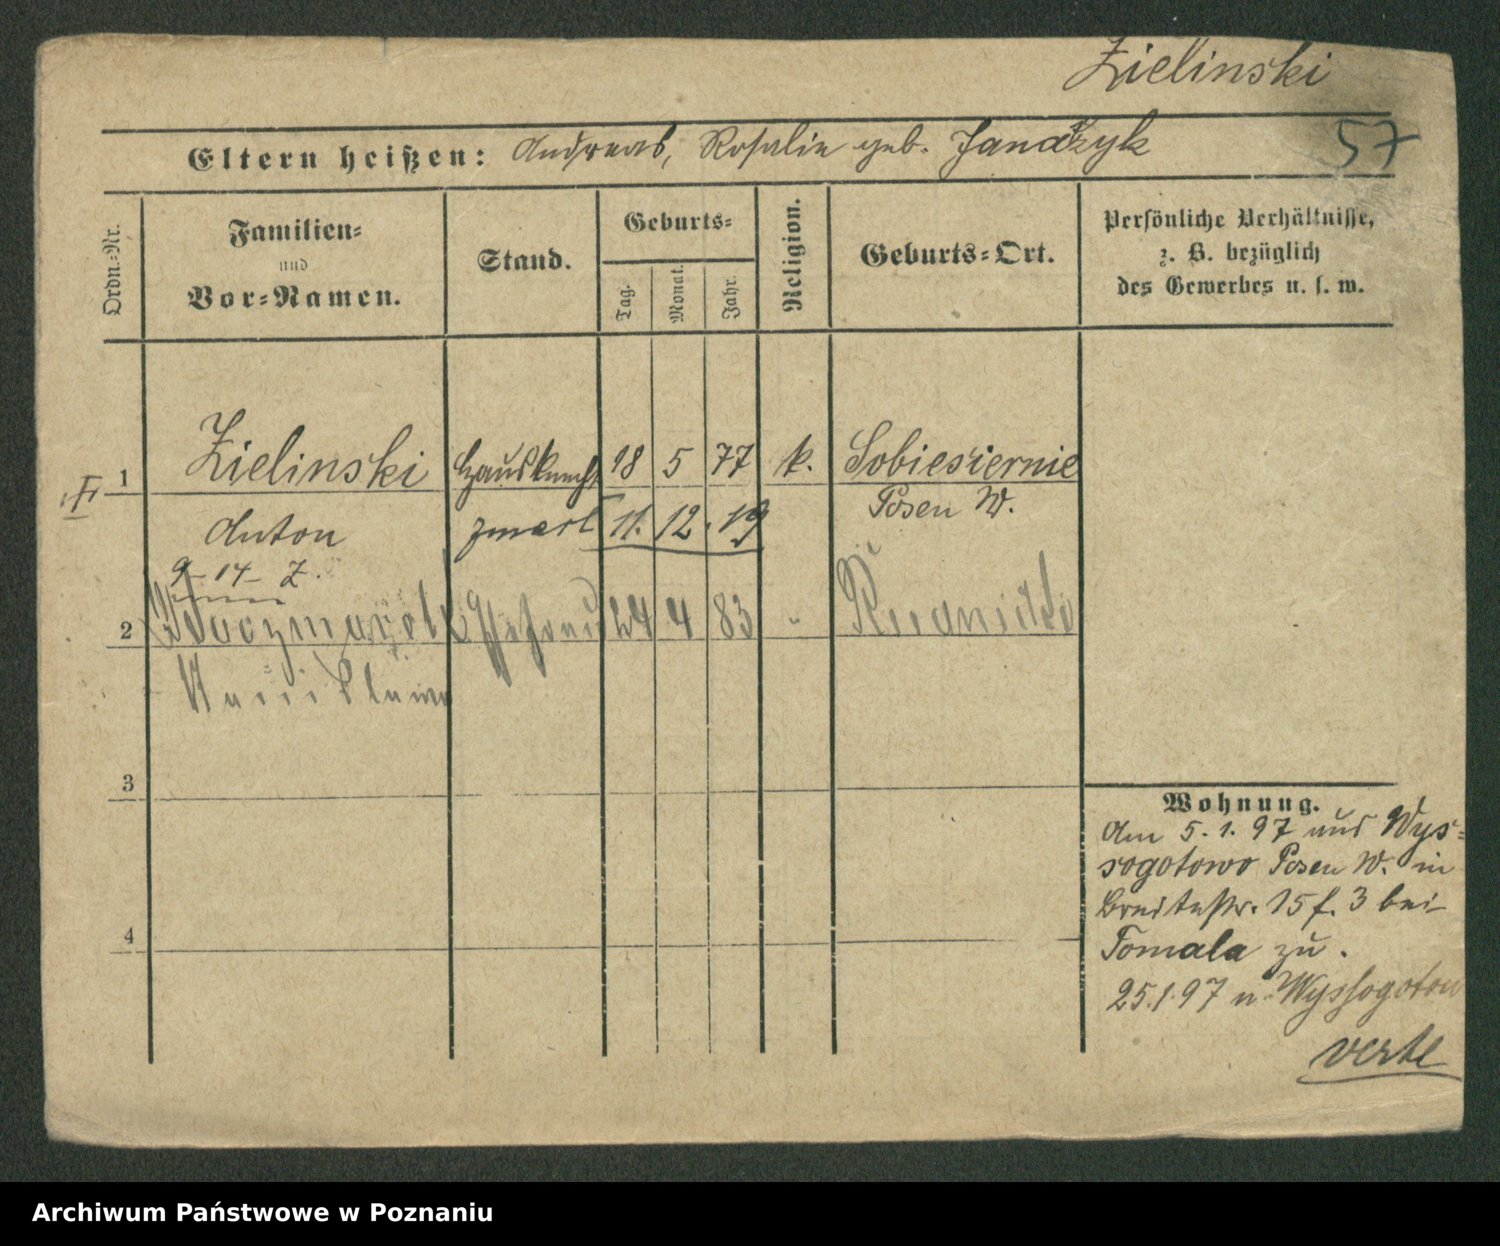 Zielinski
57
Eltern heißen: Andreas, Rosalie geb. Janaszyk
Ordn.=Nr.
Familien=
und
Vor=Namen.
Stand.
Geburts=
Tag.
Monat.
Jahr.
Religion.
Geburts=Ort.
Persönliche Verhältnisse,
z. B. bezüglich
des Gewerbes u. s. w.
1 Zielinski Hausknecht 18 5 77 k. Sobiesiernie
Anton 11. 12. 19 Posen W.
9-14- Z.
2 24 4 83 "
3
4
Wohnung.
Am 5. 1. 97 aus Wys=
sogotowo Posen W. in
Breitestr. 15 f. 3 bei
Tomala zu.
25.1.97 n. Wyssogotow
verte
Archiwum Państwowe w Poznaniu